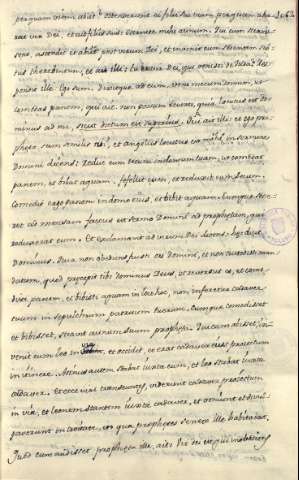 peregrum virum
via Dei, et
asset, ascendit et abiit post virum Dei, et invenit eum sedentem
subtus therebinthum, et ait illi: tu es vir Dei, qui venisti de Iuda? Res
pondit ille: Ego sum. dixitque ad eum, veni mecum domum, ut
comedas panem, qui ait, non possum reverti, quia locutus est do
minus ad me, sicut dictum est superius. Qui ait illi: et ego pro
pheta sum similis tui, et angelus locutus est mihi in sermone
Domini dicens: Reduc eum tecum in domum tuam, ut comedat
panem, et bibat aquam, fefellit eum, et reduxit eum secum.
Comedit ergo panem in domo eius, et bibit aquam. Cumque sede
ret ad mensam factus est sermo Domini ad prophetam, qui
reduxerat eum. Et exclamavit ad virum Dei dicens: hæc dicit
Dominus. Quia non obediens fuisti ori domini, et non custodisti man
datum, quod præcepit tibi dominus Deus, et reversus es, et come
disti panem, et bibisti aquam in loco hoc, non inferetur cadaver
tuum in sepulchrum patrum tuorum. Cumque comedisset
et bibisset, stravit asinum suum prophetæ. Qui cum abisset, in
venit eum leo in via, et occidit, et erat cadaver eius proiectum
in itinere. Asinus autem stabat iuxta eum, et leo stabat iuxta
cadaver. Et ecce viri transeuntes, viderunt cadaver proiectum
in via, et leonem stantem iuxta cadaver, et venerunt et divul
gaverunt in civitate, in qua prophetes senex ille habitabat,
Quod cum audisset propheta ille, ait: Vir Dei est qui inobediens